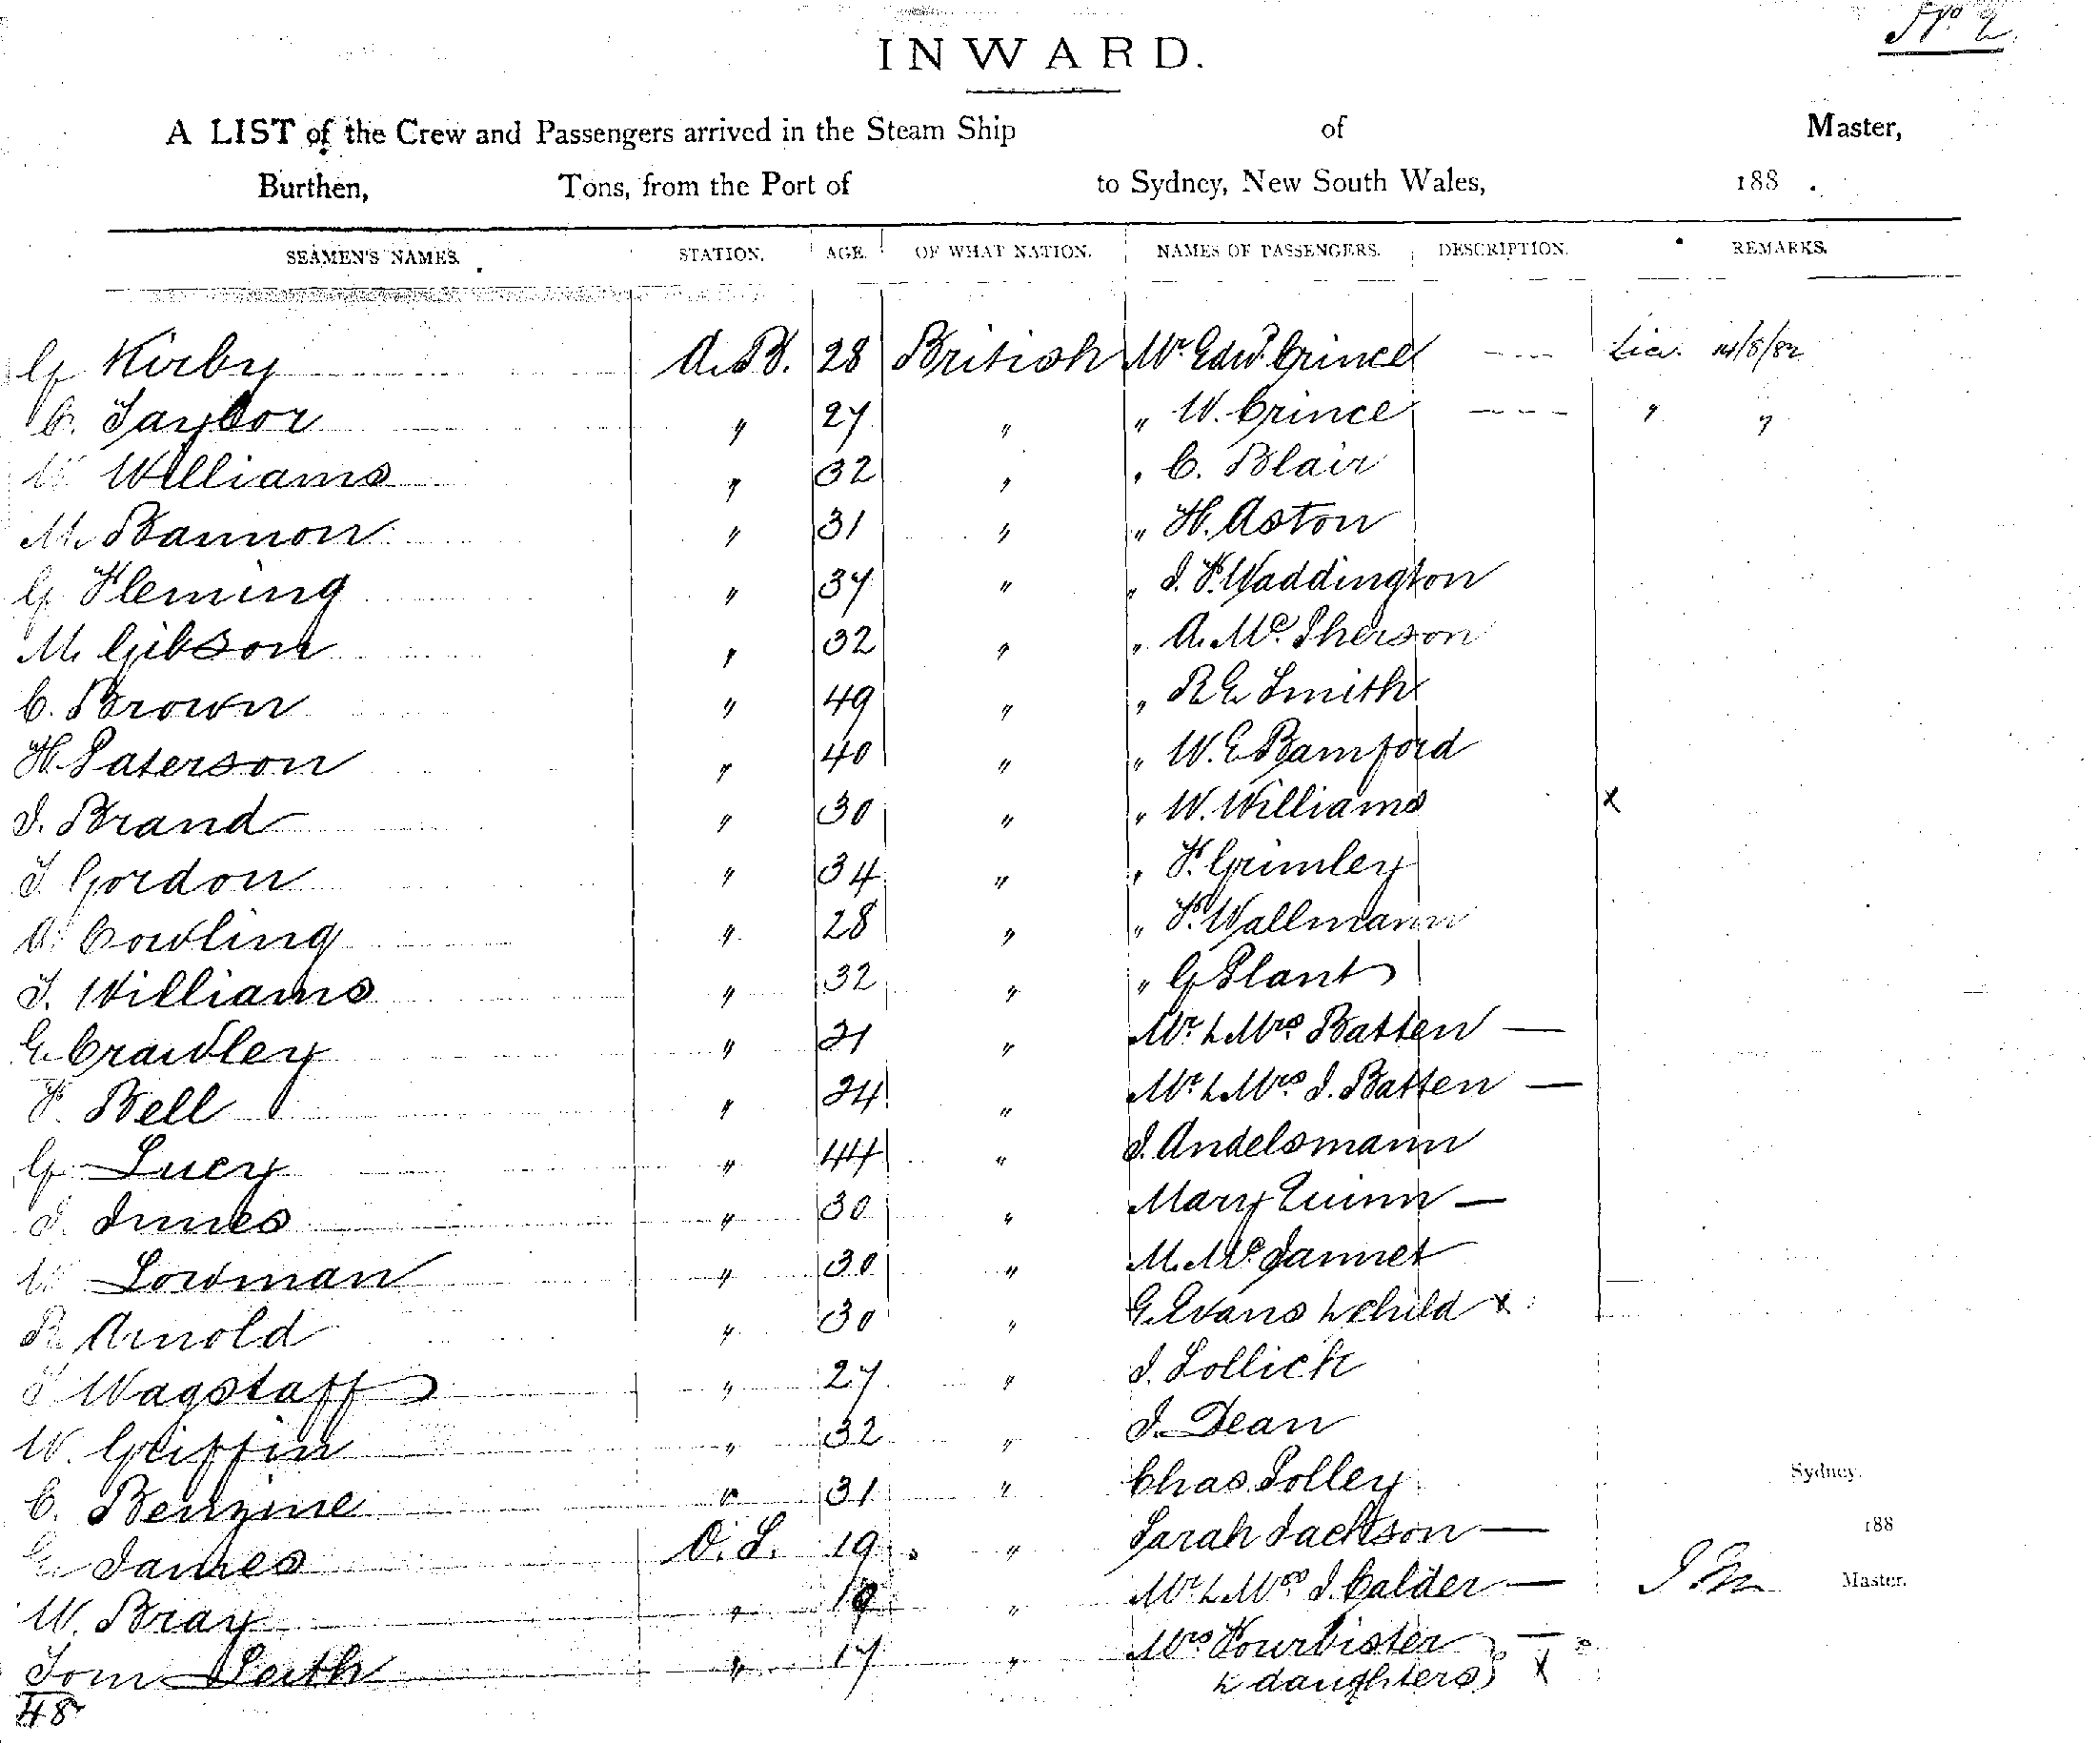 No. 2
INWARD.
A LIST of the Crew and Passengers arrived in the Steam Ship of Master,
Burthen, Tons, from the Port of to Sydney, New South Wales, 188 .
SEAMEN'S NAMES. STATION. AGE. OF WHAT NATION. NAMES OF PASSENGERS. DESCRIPTION. REMARKS.
G Kirby A.B. 28 British Mr. Edwd. Crince --- 14/8/82
C. Taylor " 27 " " W. Crince --- " "
W Williams " 32 " " C. Blair
M. Bannon " 31 " " H. Aston
G Fleming " 37 " " J. F. Waddington
M. Gibson " 32 " " A. Mc.Pherson
C. Brown " 49 " " R E Smith
H. Paterson " 40 " " W. E Bamford
J. Brand " 30 " " W. Williams x
T. Gordon " 34 " " F. Grimley
A. Cowling " 28 " " F. Wallmann
T. Williams " 32 " " G Plant
E. Crawley " 21 " Mr. & Mrs. Batten —
F. Bell " 24 " Mr. & Mrs. J. Batten —
G Lucy " 44 " J. Andelsmann
J. Innes " 30 " Mary Quinn —
W Lowman " 30 " M. Mc.Jannet
R Arnold " 30 " G. Evans & child x
T Wagstaff " 27 " J. Lollick
W. Griffin " 32 " J. Dean
C. Benzine " 31 " Chas. Polley Sydney,
G. James O.S. 19 " Sarah Jackson — 188
W. Bray " 19 " Mr. & Mrs. J. Calder — Master.
Tom Leith " 17 " Mrs Fourbister —
& daughters} x
48